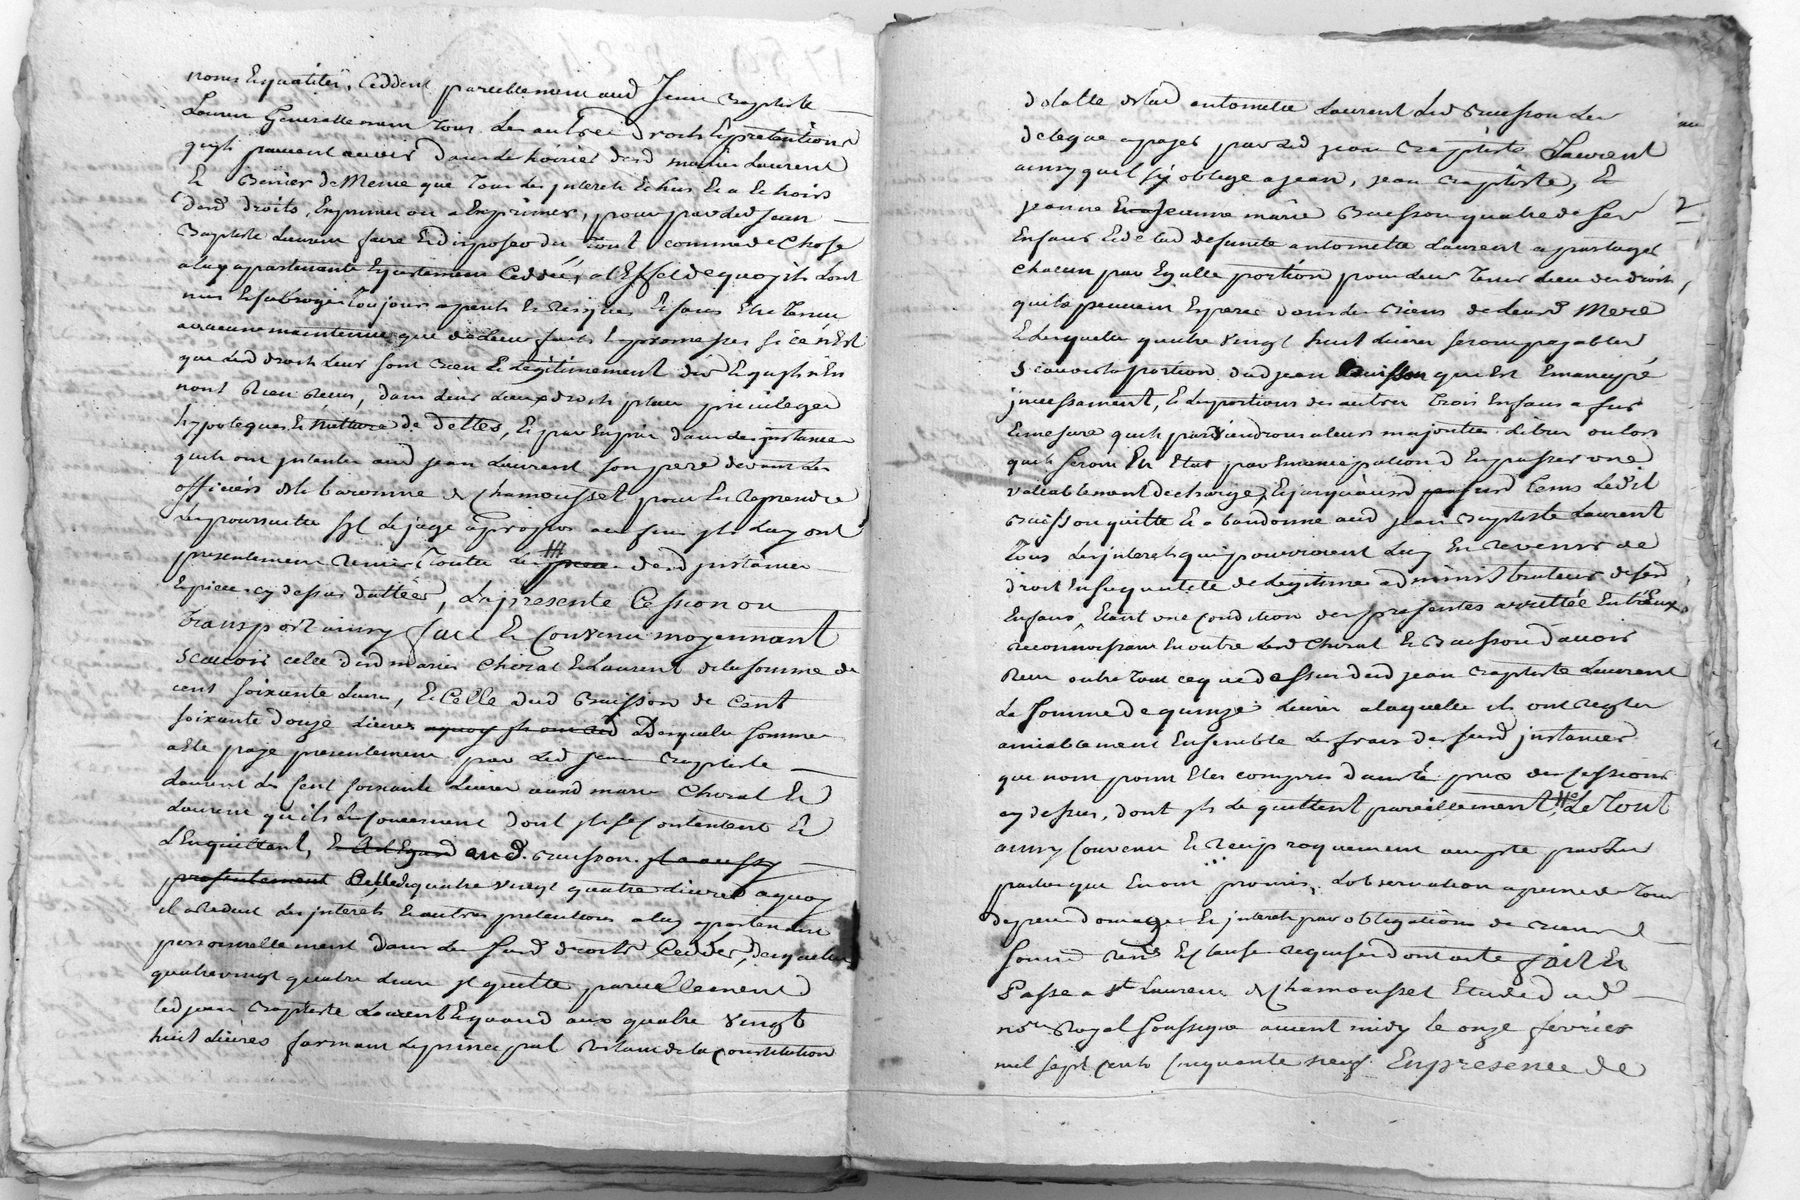 noms Equalités, Ceddent pareillement aud Jean Baptiste
Laurent Generallement Tous Les autres Droits Et pretentions
qu'ils peuvent avoir Dans les hoiries desd maries Laurent
Et Benier de Meme que Tous les jnterets Echus Et a Echoirs
desd droits, Exprimer ou a Exprimer, pour par led jean
Baptiste Laurent faire Et disposer du Tout comme de Chose
a luy apartenante Et justement Ceddée, a l'Effet de quoy ils l'ont
mis Et subrogé Toujours a perils Et Risques Et sans Etre Tenus
a aucune maintenue que de Leurs faits Et promesses si cé n'Est
que lesd droits leur sont bien Et Legitimement dus Et qu'ils n'En
nont Rien Reçus, dans leurs lieux droits place privileges
hypoteques Et Nature de dettes, Et par Exprés dans les jnstances
qu'ils ont jntentées aud jean Laurent son pere devant Les
officiers de la baronnie de Chamousset pour En Reprendre
Les poursuittes si Le juge a propos aux fins ils Luy ont
presentement Remis Toutes les pieces desd jnstances
Et pieces cy dessus dattées, La presente Cession ou
Transport ainsy fait Et Convenu moyennant
scavoir celle desd maries Chirat Et Laurent de la somme de
cent soixante Livres, Et Celle dud Buisson de Cent
soixante douze Livres Desquelles sommes
a Eté payé presentement par led jean Baptiste
Laurent les Cent soixante Livres ausd maries Chirat Et
Laurent qu'ils Conviennent dont ils se Contentent Et
L'En quittent, aud. Buisson
Celle de quatre vingt quatre Livres a quoy
il a Reduit les jnterets Et autres pretentions a luy apartenant
personnellement dans les susd droits Ceddés, desquelles
quatre vingt quatre Livres il quitte pareillement
led jean Baptiste Laurent Et quand aux quatre vingt
huit Livres formant le principal Restant de la Constitution
dotalle de lad antoinette Laurent led Buisson Les
delegue a payer par led jean Baptiste Laurent
ainsy qu'il s'y oblige a jean, jean Baptiste, Et
jeanne Et jeanne marie Buisson quatre de ses
Enfans Et de lad defunte antoinette Laurent a partager
chacun par Egalle portion pour leur Tenir Lieu des droits
qu'ils peuvent Esperer dans les Biens de leurd Mere
Et lesquelles quatre vingt huit Livres seront payables
scavoir la portion dud jean Buisson qui Est Emancipé
jncessament, Et les portions des autres Trois Enfans a fur
Et mesure qu'ils parviendront a leurs majorités Libres ou lors
qu'ils seront En Etat par Emancipation d'En passer une
vallablement decharge, Et jusqu'aud Tems Led
Buisson quitte Et abandonne aud jean Baptiste Laurent
Tous les jnterets qui pouvoient Luy En Revenir de
droit En sa qualité de Legitime administrateur de sesd
Enfans, Etant une Condition des presentes arrettée Entr'Eux,
reconnoissant En outre lesd Chirat Et Buisson d'avoir
Reçu outre Tout ce que dessus dud jean Baptiste Laurent
La somme de quinze Livres a laquelle ils ont Reglés
amiablement Ensemble les frais des susd jnstances
qui n'ont point Eté compris dans le prix des Cessions
cy dessus, dont ils Le quittent pareillement, Le Tout
ainsy Convenu Et Reciproquement accepté par Les
parties qui En ont promis L'observation a peine de Tous
depens domages Et jnterets par obligations de Biens
soumis Renon Et Clauses requises dont acte fait Et
Passé a St Laurent de Chamousset Etude dud
nore Royal soussigné avant midy le onze fevrier
mil sept Cents Cinquante neuf. En presence de